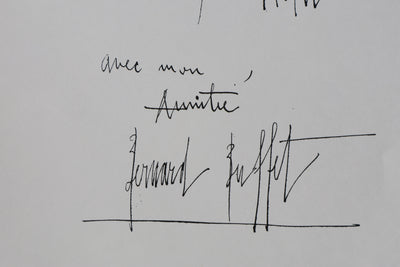 avec mon
Amitié
Bernard Buffet